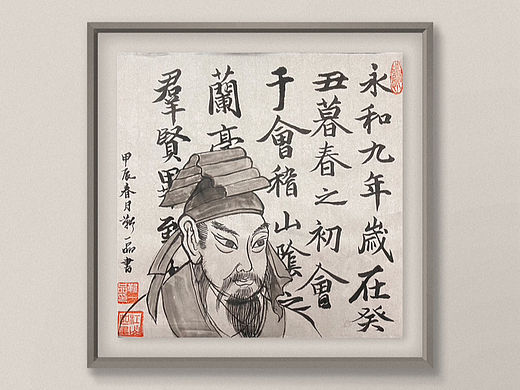 永和九年歲在癸
丑暮春之初會
于會稽山陰之
蘭亭
羣賢畢至
甲辰春月一品書